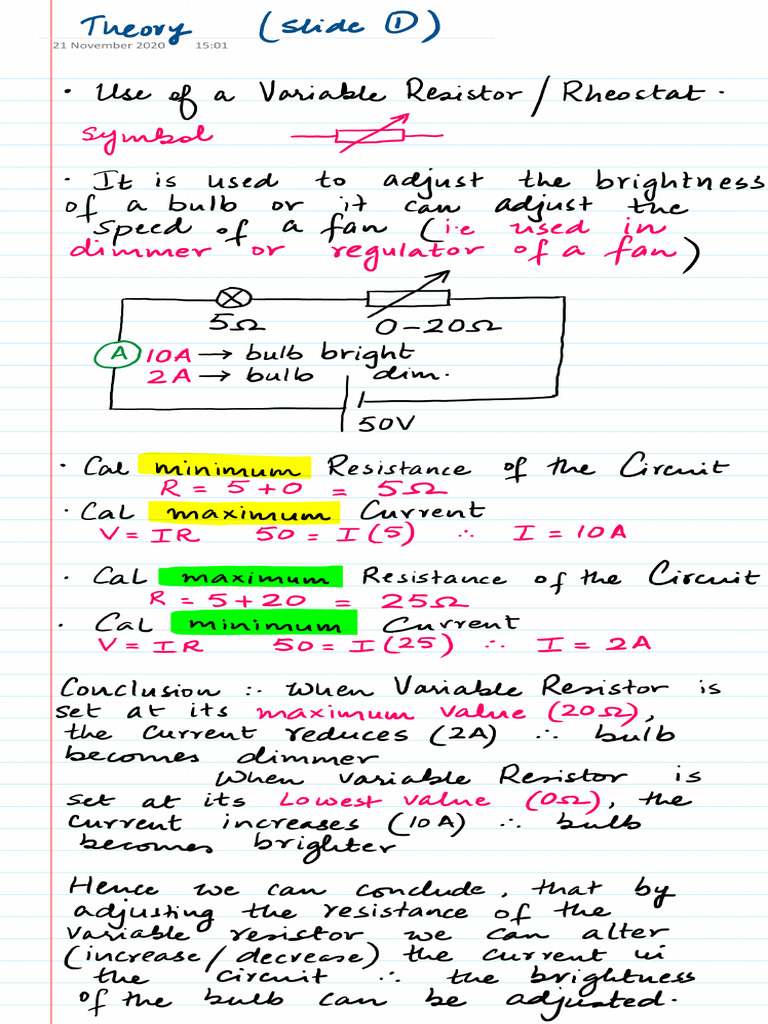 Theory (slide ①)
21 November 2020 15:01
• Use of a Variable Resistor / Rheostat.
Symbol
• It is used to adjust the brightness
of a bulb or it can adjust the
speed of a fan (i.e used in
dimmer or regulator of a fan)
5Ω 0-20Ω
A 10A → bulb bright
2A → bulb dim.
50V
• Cal minimum Resistance of the Circuit
R = 5+0 = 5Ω
• Cal maximum Current
V = IR 50 = I(5) ∴ I = 10A
• Cal maximum Resistance of the Circuit
R = 5+20 = 25Ω
• Cal minimum Current
V = IR 50 = I(25) ∴ I = 2A
Conclusion :- When Variable Resistor is
set at its maximum value (20Ω),
the current reduces (2A) ∴ bulb
becomes dimmer
When variable Resistor is
set at its Lowest value (0Ω), the
current increases (10A) ∴ bulb
becomes brighter
Hence we can conclude, that by
adjusting the resistance of the
variable resistor we can alter
(increase/decrease) the current in
the circuit ∴ the brightness
of the bulb can be adjusted.